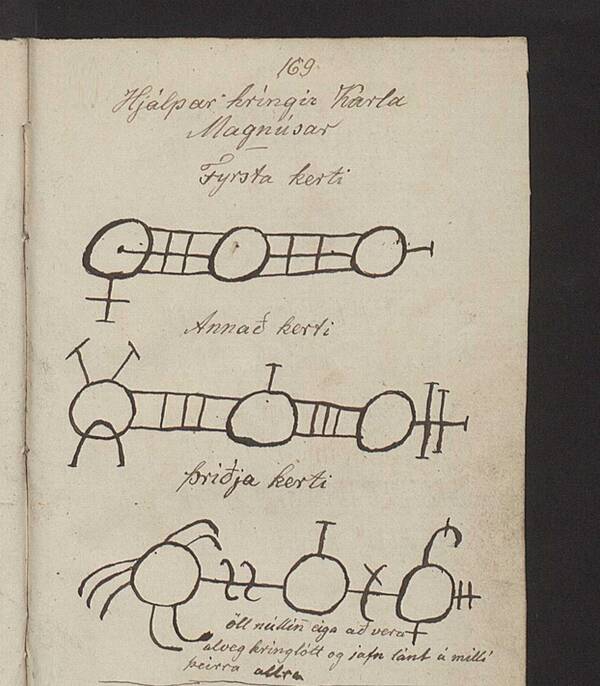 169.
Hjálpar hringir Karla
Magnúsar
Fyrsta kerti
Annað kerti
Þriðja kerti
öll núllin eiga að vera
alveg kringlótt og jafn lánt á milli
þeirra allra